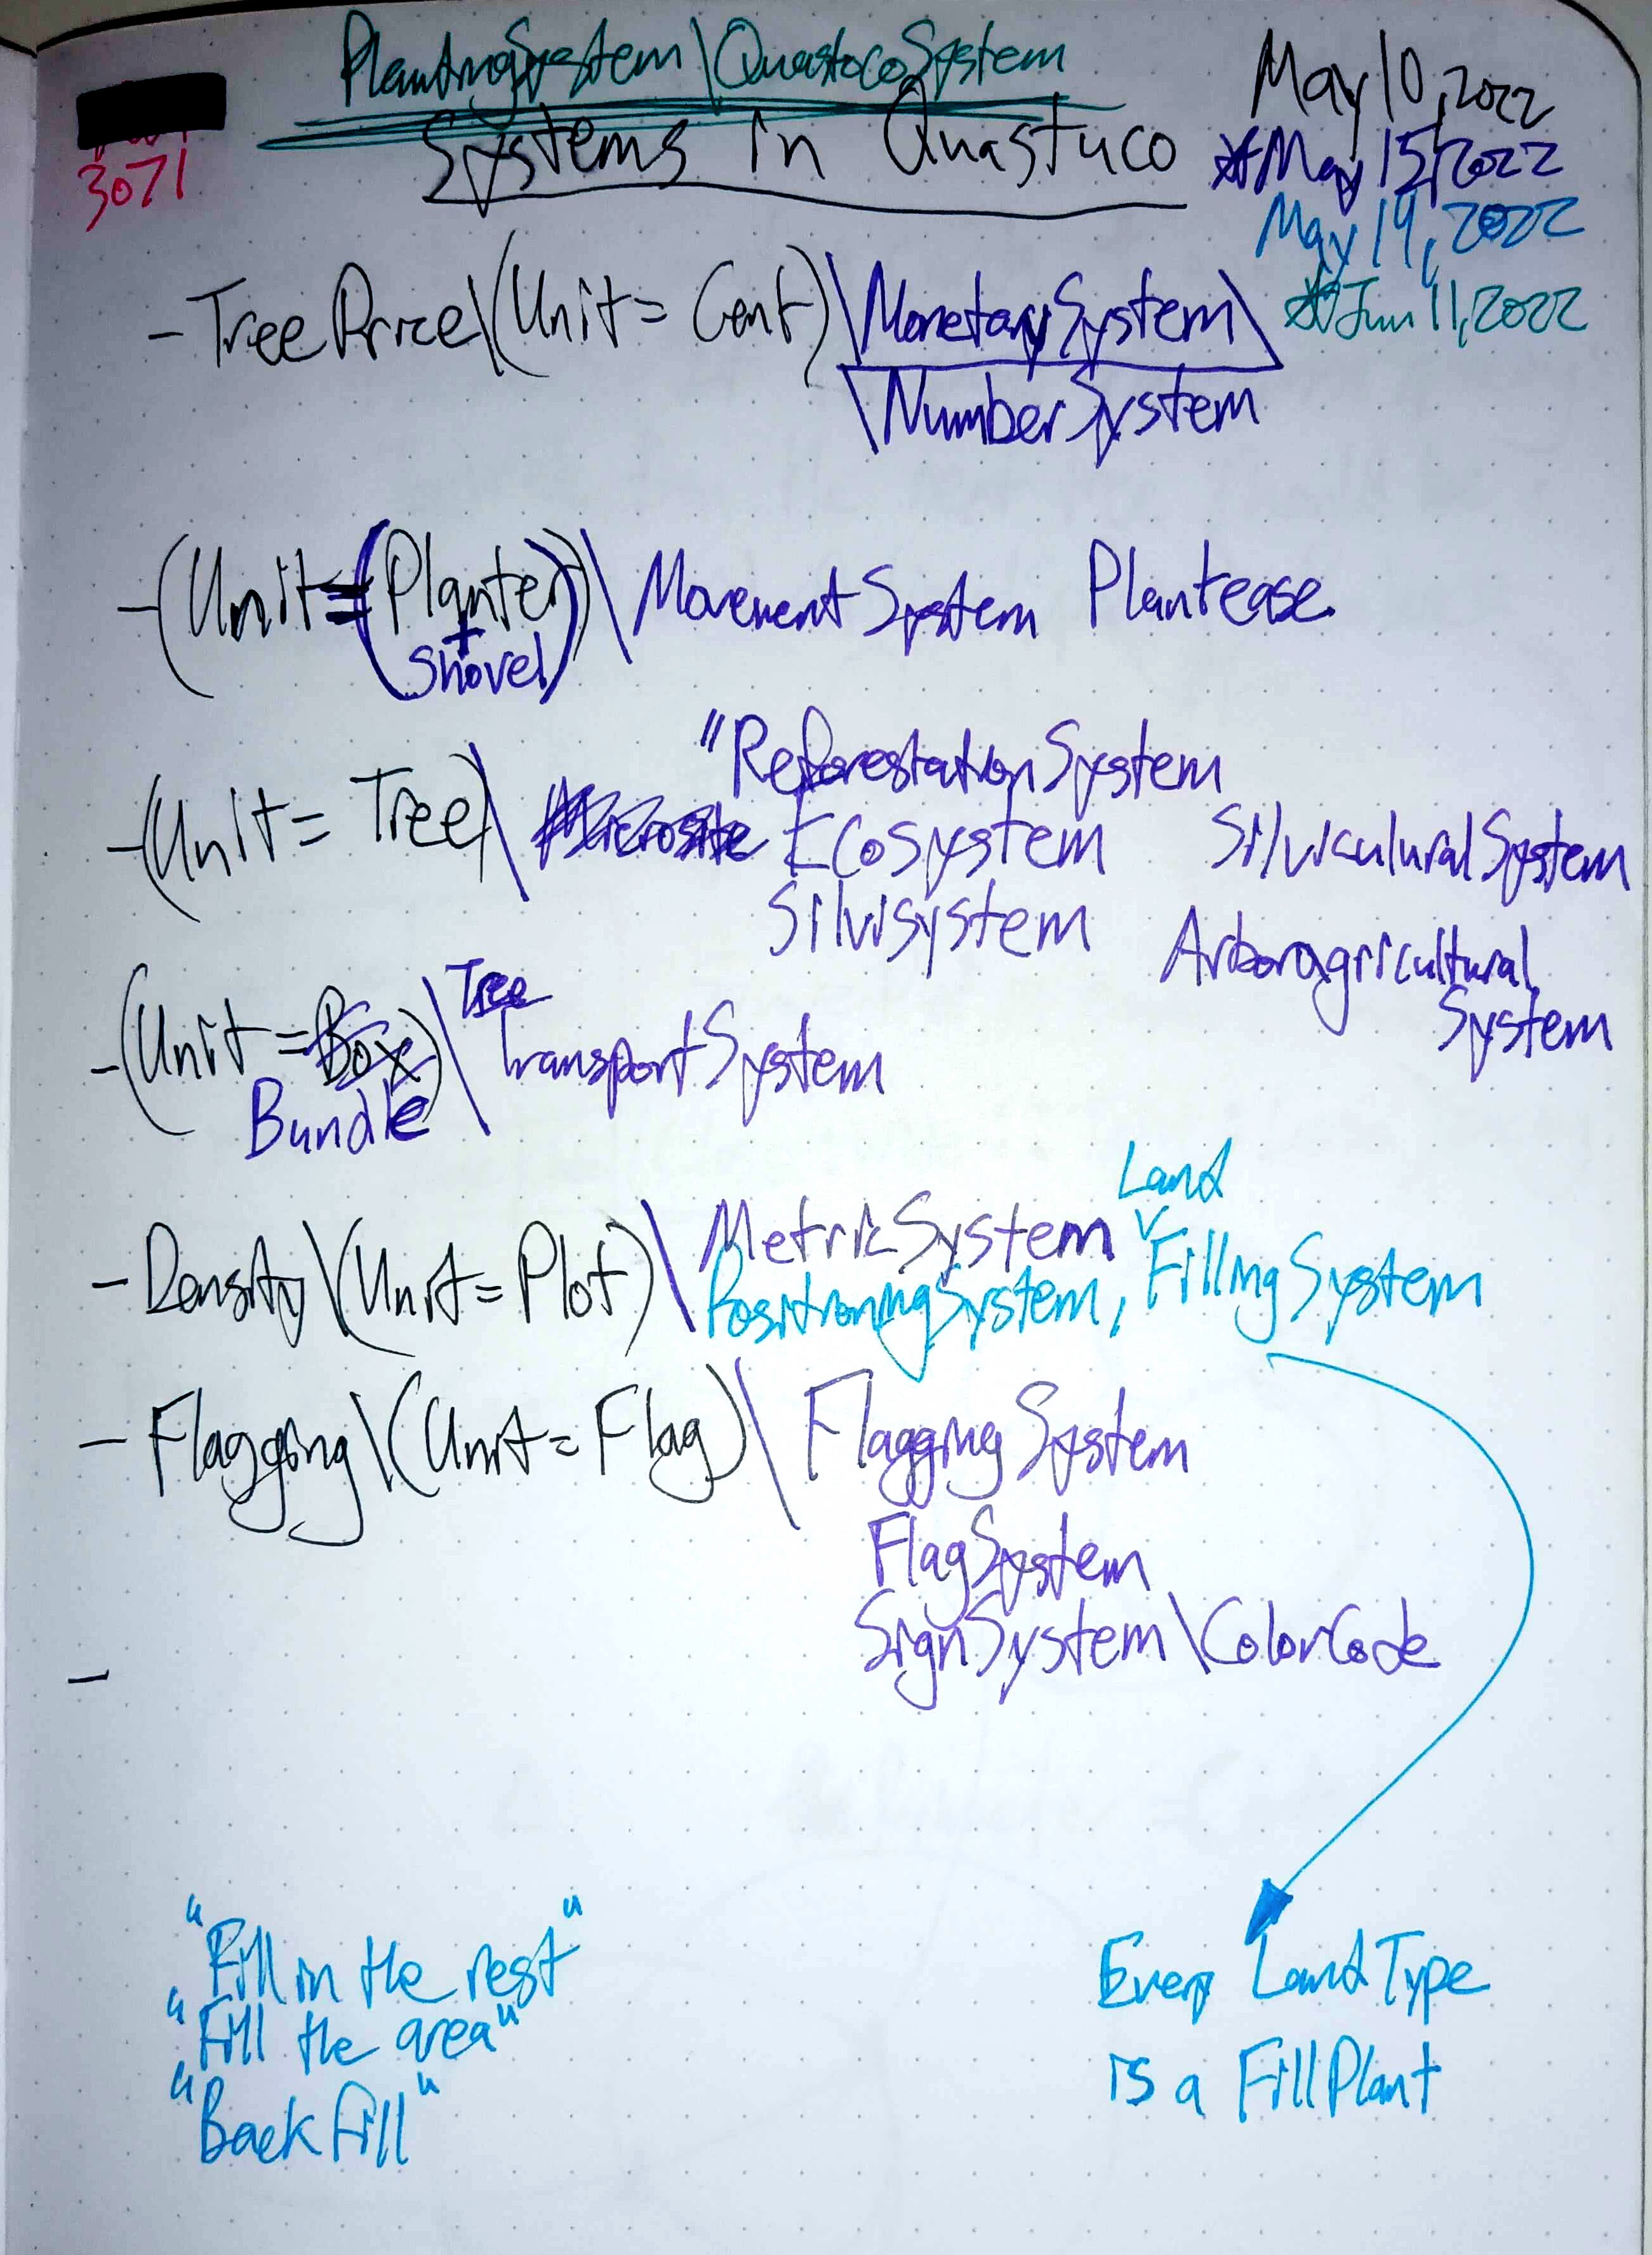 PlantingSystem\QuastucoSystem
Systems in Quastuco
May 10, 2022
*May 15, 2022
May 19, 2022
*Jun 11, 2022
3071
- TreePrice\(Unit = Cent)\MonetarySystem\
\NumberSystem
- (Unit = (Planter + Shovel))\MovementSystem Plantease
"ReforestationSystem
- (Unit = Tree)\ Microsite Ecosystem SilviculuralSystem
Silvisystem Arboragricultural System
- (Unit = Box)\Tree TransportSystem
Bundle
- Density\(Unit = Plot)\MetricSystem
PositioningSystem, Land FillingSystem
- Flagging\(Unit = Flag)\FlaggingSystem
FlagSystem
SignSystem\ColorCode
-
"Fill in the rest"
"Fill the area"
"Backfill"
Every LandType
is a FillPlant